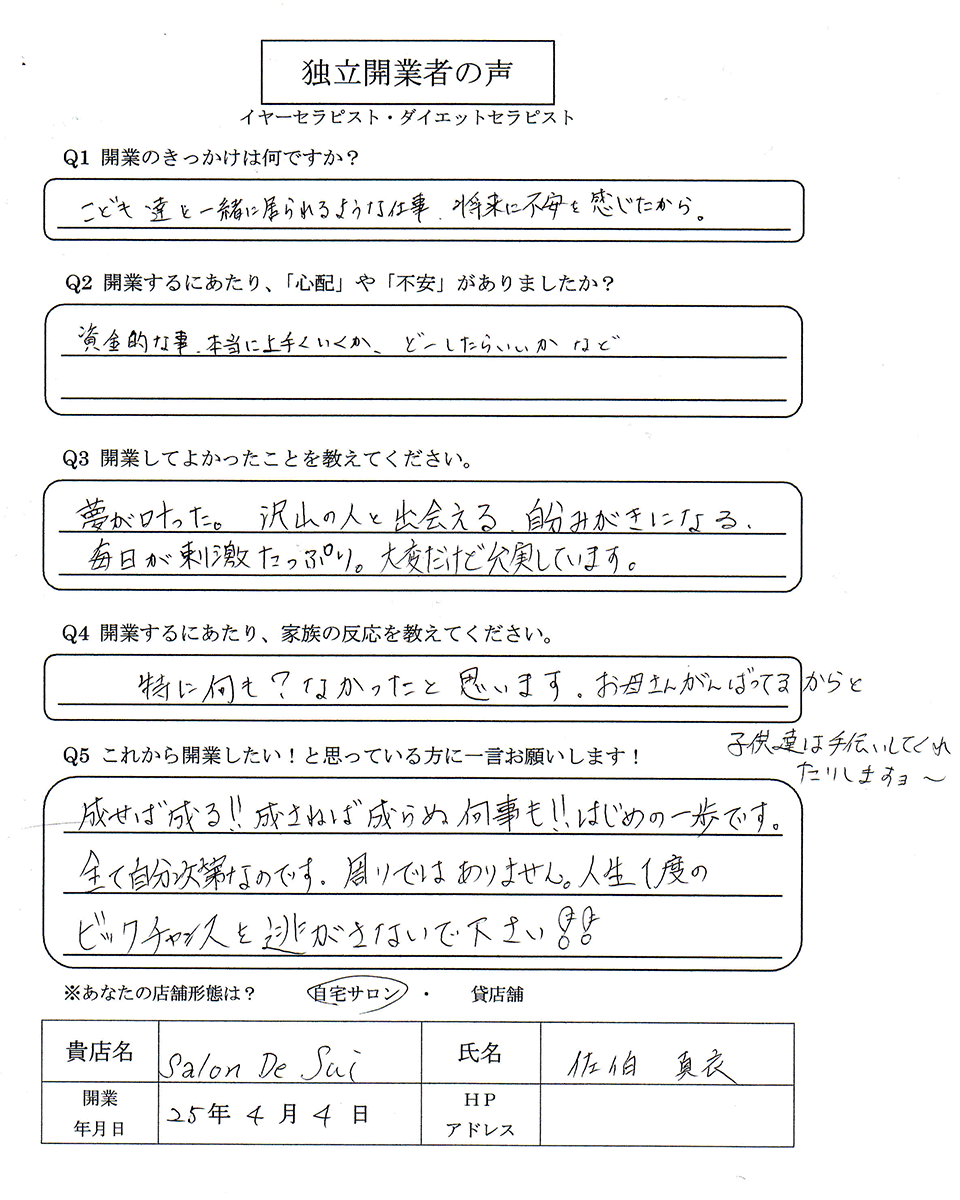 独立開業者の声
イヤーセラピスト・ダイエットセラピスト
Q1 開業のきっかけは何ですか？
こども達と一緒に居られるような仕事、将来に不安を感じたから。
Q2 開業するにあたり、「心配」や「不安」がありましたか？
資金的な事、本当に上手くいくか、どーしたらいいかなど
Q3 開業してよかったことを教えてください。
夢が叶った。沢山の人と出会える、自分みがきになる、
毎日が刺激たっぷり。大変だけど充実しています。
Q4 開業するにあたり、家族の反応を教えてください。
特に何も？なかったと思います。お母さんがんばってるからと
子供達は手伝いしてくれ
たりしますョ〜
Q5 これから開業したい！と思っている方に一言お願いします！
成せば成る!!成さねば成らぬ何事も!!はじめの一歩です。
全て自分次第なのです。周りではありません。人生1度の
ビックチャンスを逃がさないで下さい!!
※あなたの店舗形態は？ 自宅サロン ・ 貸店舗
貴店名 Salon De Sui 氏名 佐伯 真衣
開業 年月日 25年 4月 4日 HP アドレス